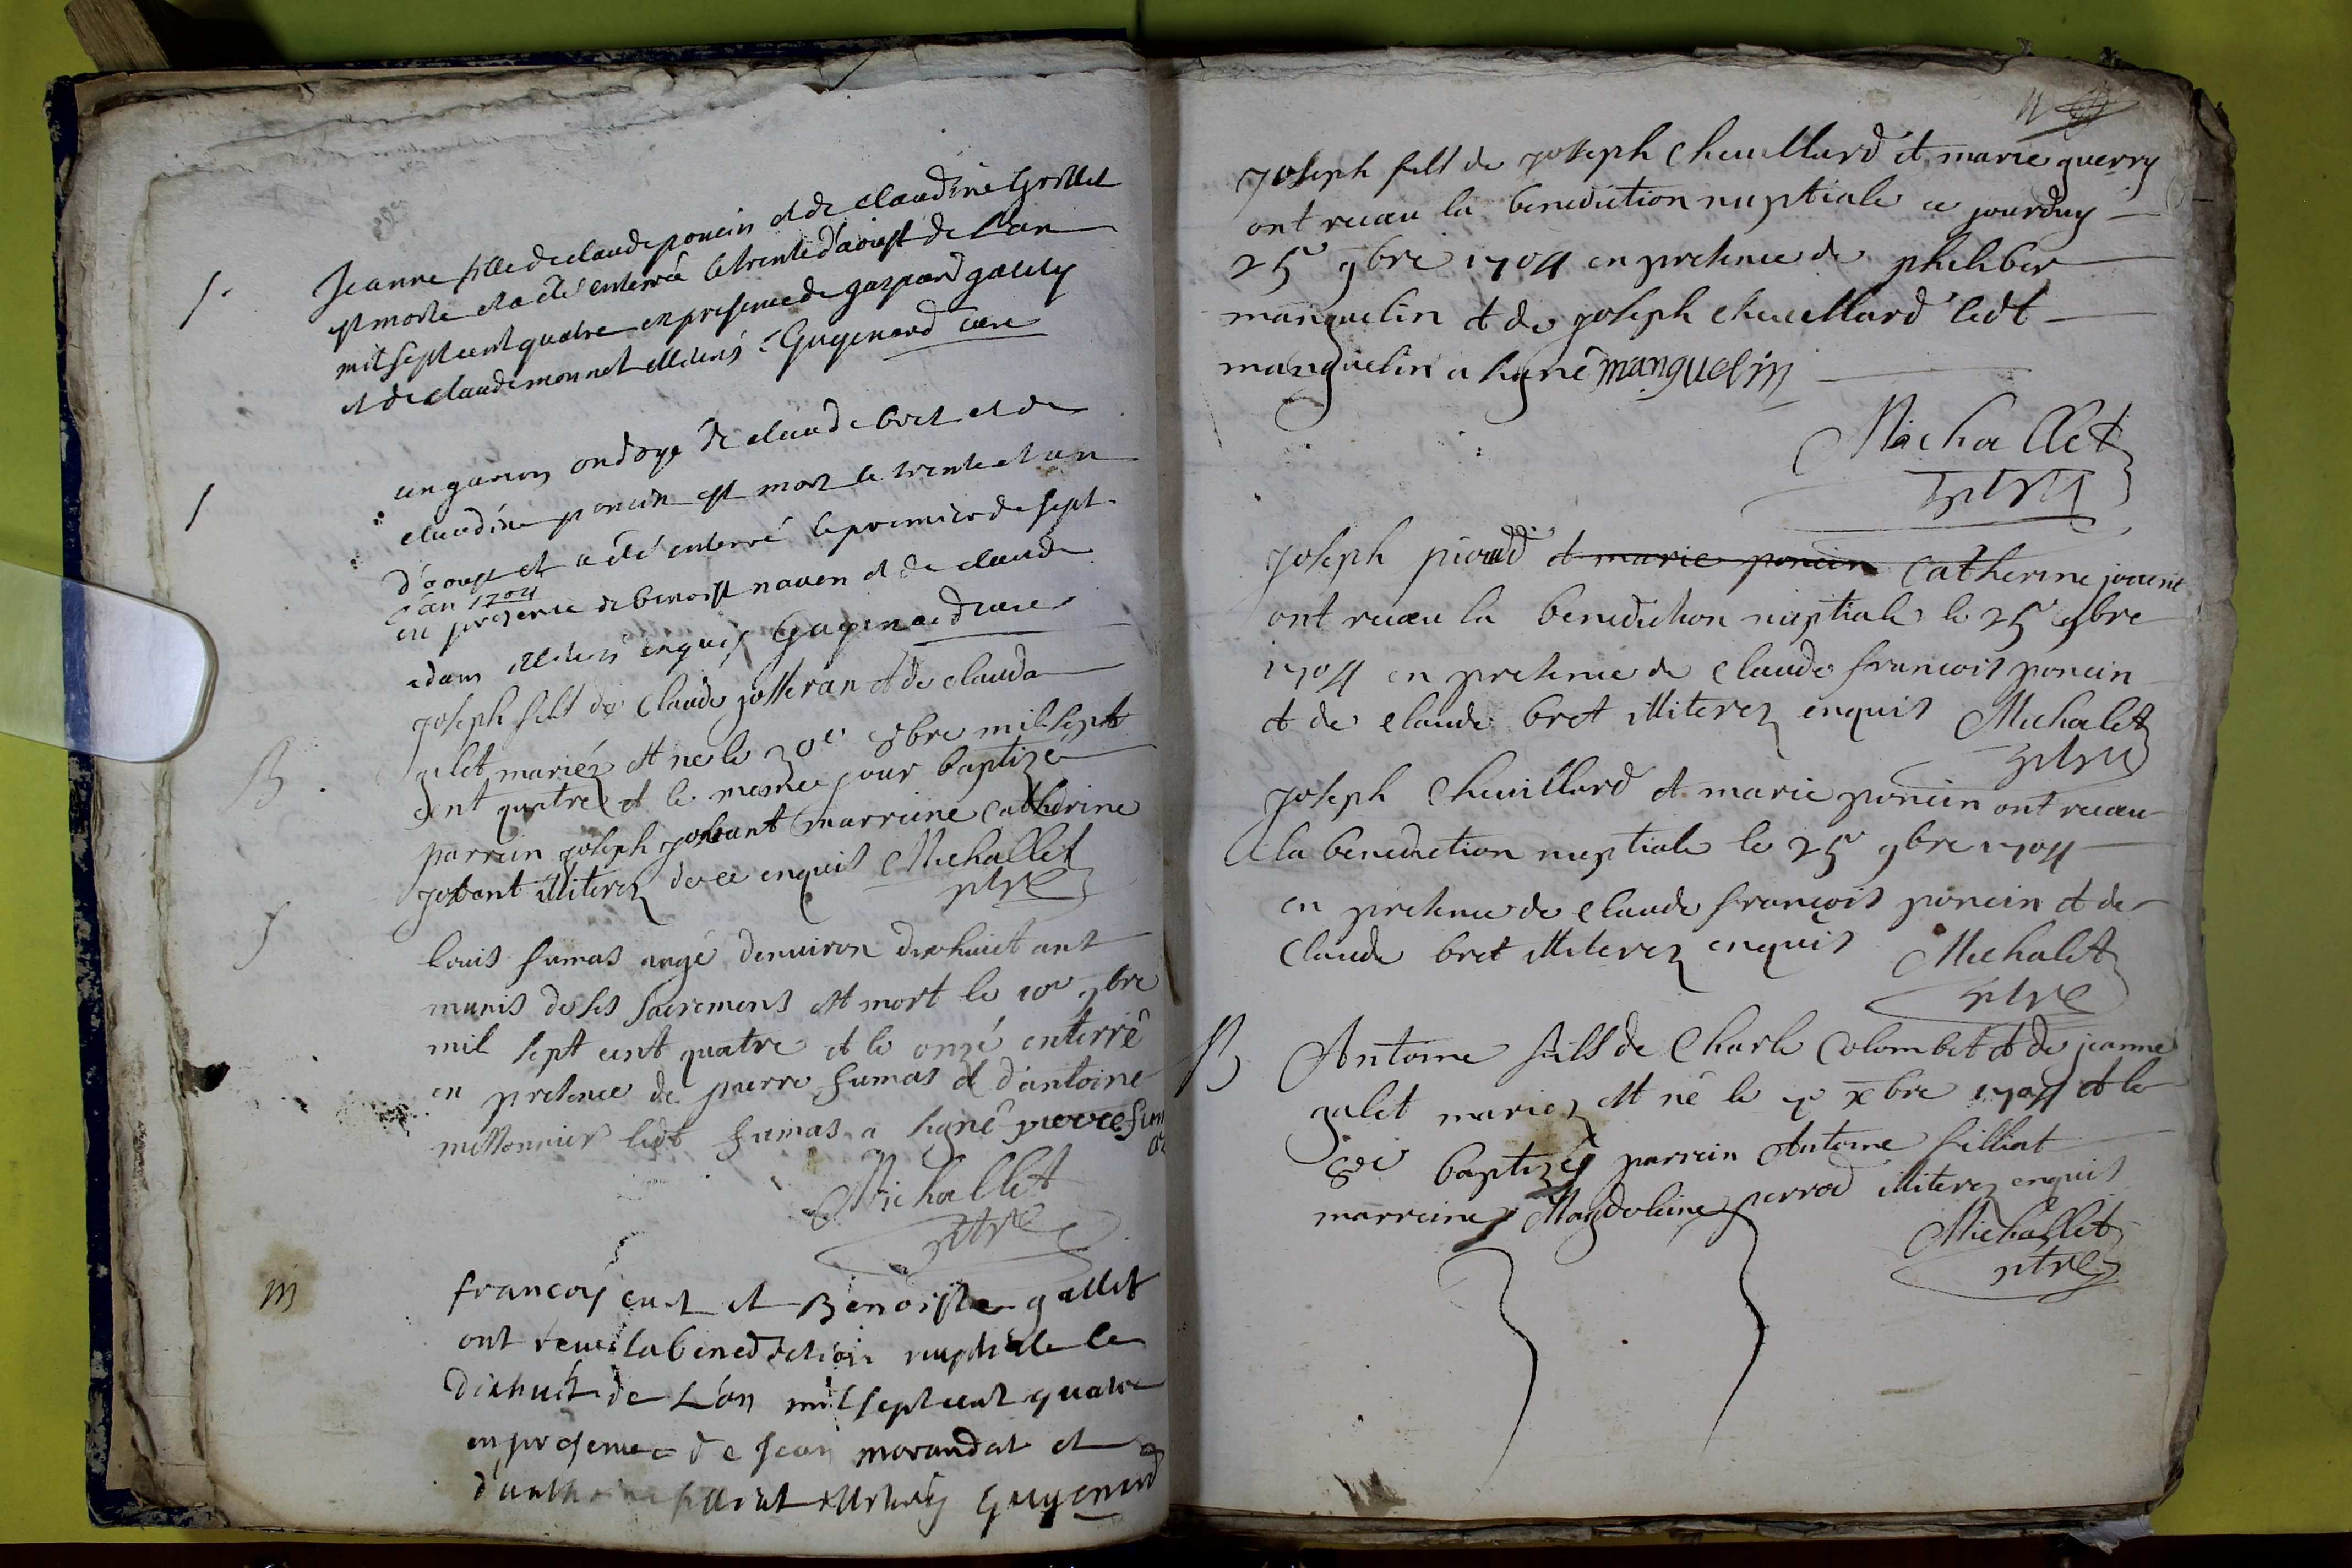 S.
Jeanne fille de claude poncin et de claudine Grillet
est morte et a été enterrée le trente d'aoust de l'an
mil sept cent quatre en presence de gaspard galley
et de claude monnet illiterés Guyenard cure
S
un garcon ondoyé de claude bret et de
claudine poncin est mort le trente et un
d'aoust et a été enterré le premier de sept.
l'an 1704
en presence de benoist naven et de claude
adam illiterés enquis Guyenard cure
B.
Joseph fils de Claude josseran et de clauda
galet mariéz est ne le 30e 8bre mil sept
cent quatre et le mesme jour baptizé
parrein joseph jobant marreine Catherine
jobant illiterez de ce enquis Michallet
ptre
S
Louis fumas augé denuiron dixhuict ans
munis de ses sacremens est mort le 10e 9bre
mil sept cent quatre et le onzé enterré
en presence de pierre fumas et d'antoine
missonnier ledt fumas a signé pierre fum
as
Michallet
ptre
M
francoy cust et Benoiste gallet
ont receu la benediction nuptiale le
dixhuit de L'an mil sept cent quatre
en presence de Jean morandat et
d'anthoine filliat illiteréz Guyenard
11
Joseph fils de joseph Cheuillard et marie guerry
ont receu la benediction nuptiale ce jourduy
25 9bre 1704 en presence de philiber
manguelin et de joseph cheuillard ledt
manguelin a signé manguelin
Michallet
ptre
Joseph pioudd et marie poncin Catherine jouent
ont receu la benediction nuptiale le 25 9bre
1704 en presence de claude francois poncin
et de claude bret illiterez enquis Michalet
ptre
Joseph Cheuillard et marie poncin ont receu
la benediction nuptiale le 25 9bre 1704
en presence de claude francois poncin et de
Claude bret illiterez enquis Michalet
ptre
B
Antoine fills de Charle Colombet et de jeanne
galet mariez est né le xbre 1704 et le
8e baptizé parrein Antoine filliat
marreine Magdeleine perrod illiterez enquis
Michallet
ptre